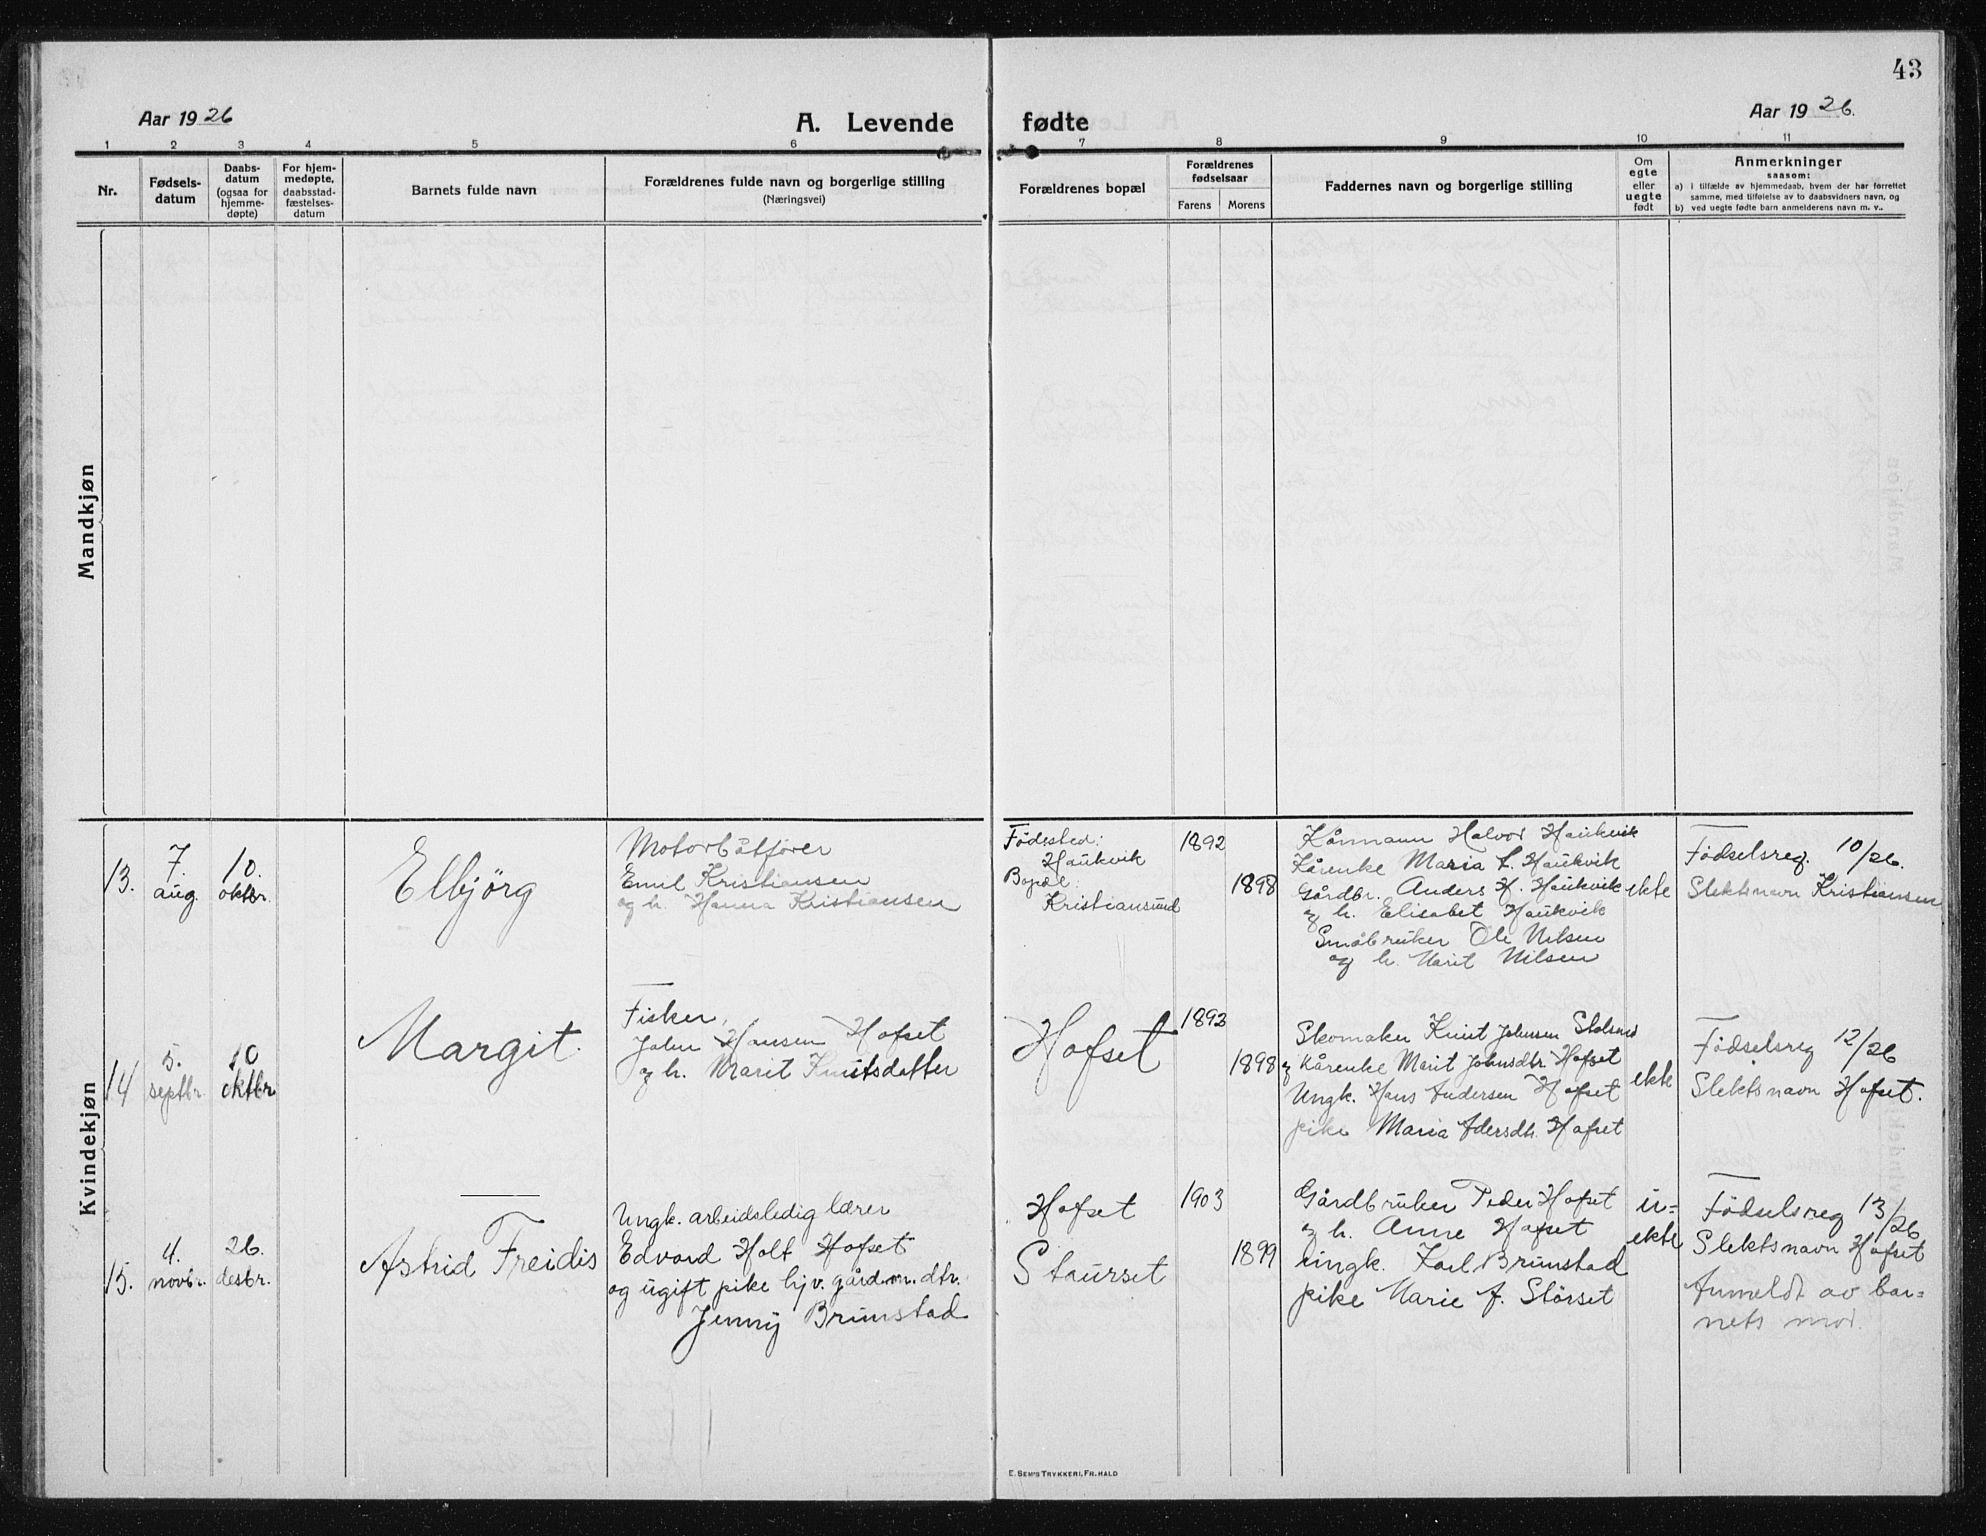 43
Aar 1926
A. Levende fødte
Aar 1926.
1 2 3 4 5 6 7 8 9 10 11
Nr.
Fødsels-
datum
Daabs-
datum
(ogsaa for
hjemme-
døpte)
For hjem-
medøpte,
daabsstad-
fæstelses-
datum
Barnets fulde navn
Forældrenes fulde navn og borgerlige stilling
(Næringsvei)
Forældrenes bopæl
Forældrenes
fødselsaar
Farens Morens
Faddernes navn og borgerlige stilling
Om
egte
eller
uegte
født
Anmerkninger
saasom:
a) i tilfælde av hjemmedaab, hvem der har forrettet
samme, med tilføielse av to daabsvidners navn, og
b) ved uegte fødte barn anmelderens navn m. v..
Mandkjøn
Kvindekjøn
13.
7.
aug.
10.
oktbr.
Elbjörg
Motorbåtfører
Emil Kristiansen
og h. Hanna Kristiansen
Födested:
Haukvik
Bopæl:
Kristiansund
1892
1898
Kårmann Halvor Haukvik
Kårenke Maria L. Haukvik
Gårdbr. Anders H. Haukvik
og h. Elisabet Haukvik
Småbruker Ole Nilsen
og h. Marit Nilsen
ekte
Födselsreg. 10/26.
Slektsnavn Kristiansen
14
5.
septbr.
10
oktbr.
Margit.
Fisker,
John Hansen Hofset
og h. Marit Knutsdatter
Hofset
1893
1898
Skomaker Knut Johnsen
og Kårenke Marit Johnsdtr. Hofset
Ungk. Hans Andersen Hofset
pike Maria Adersdtr. Hofset
ekte
Födselsreg 12/26
Slektsnavn Hofset.
15.
4.
novbr.
26.
desbr.
Astrid Freidis
Ungk. arbeidsledig lærer
Edvard Holt Hofset
og ugift pike hjv. gårdm. dtr.
Jenny Brunstad
Hofset
Staurset
1903
1899
Gårdbruker Peder Hofset
og h. Anne Hofset
ungk. Karl Brunstad
pike Marie A. Störset
u=
ekte
Födselsreg 13/26
Slektsnavn Hofset
Anmeldt av bar=
nets mor.
E. Sem's Trykkeri, Fr. Hald